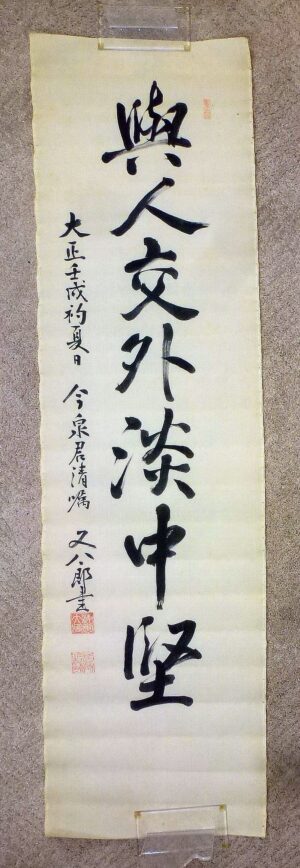 與人交外淡中堅
大正壬戌初夏日 今泉君清嘱 又八郎書